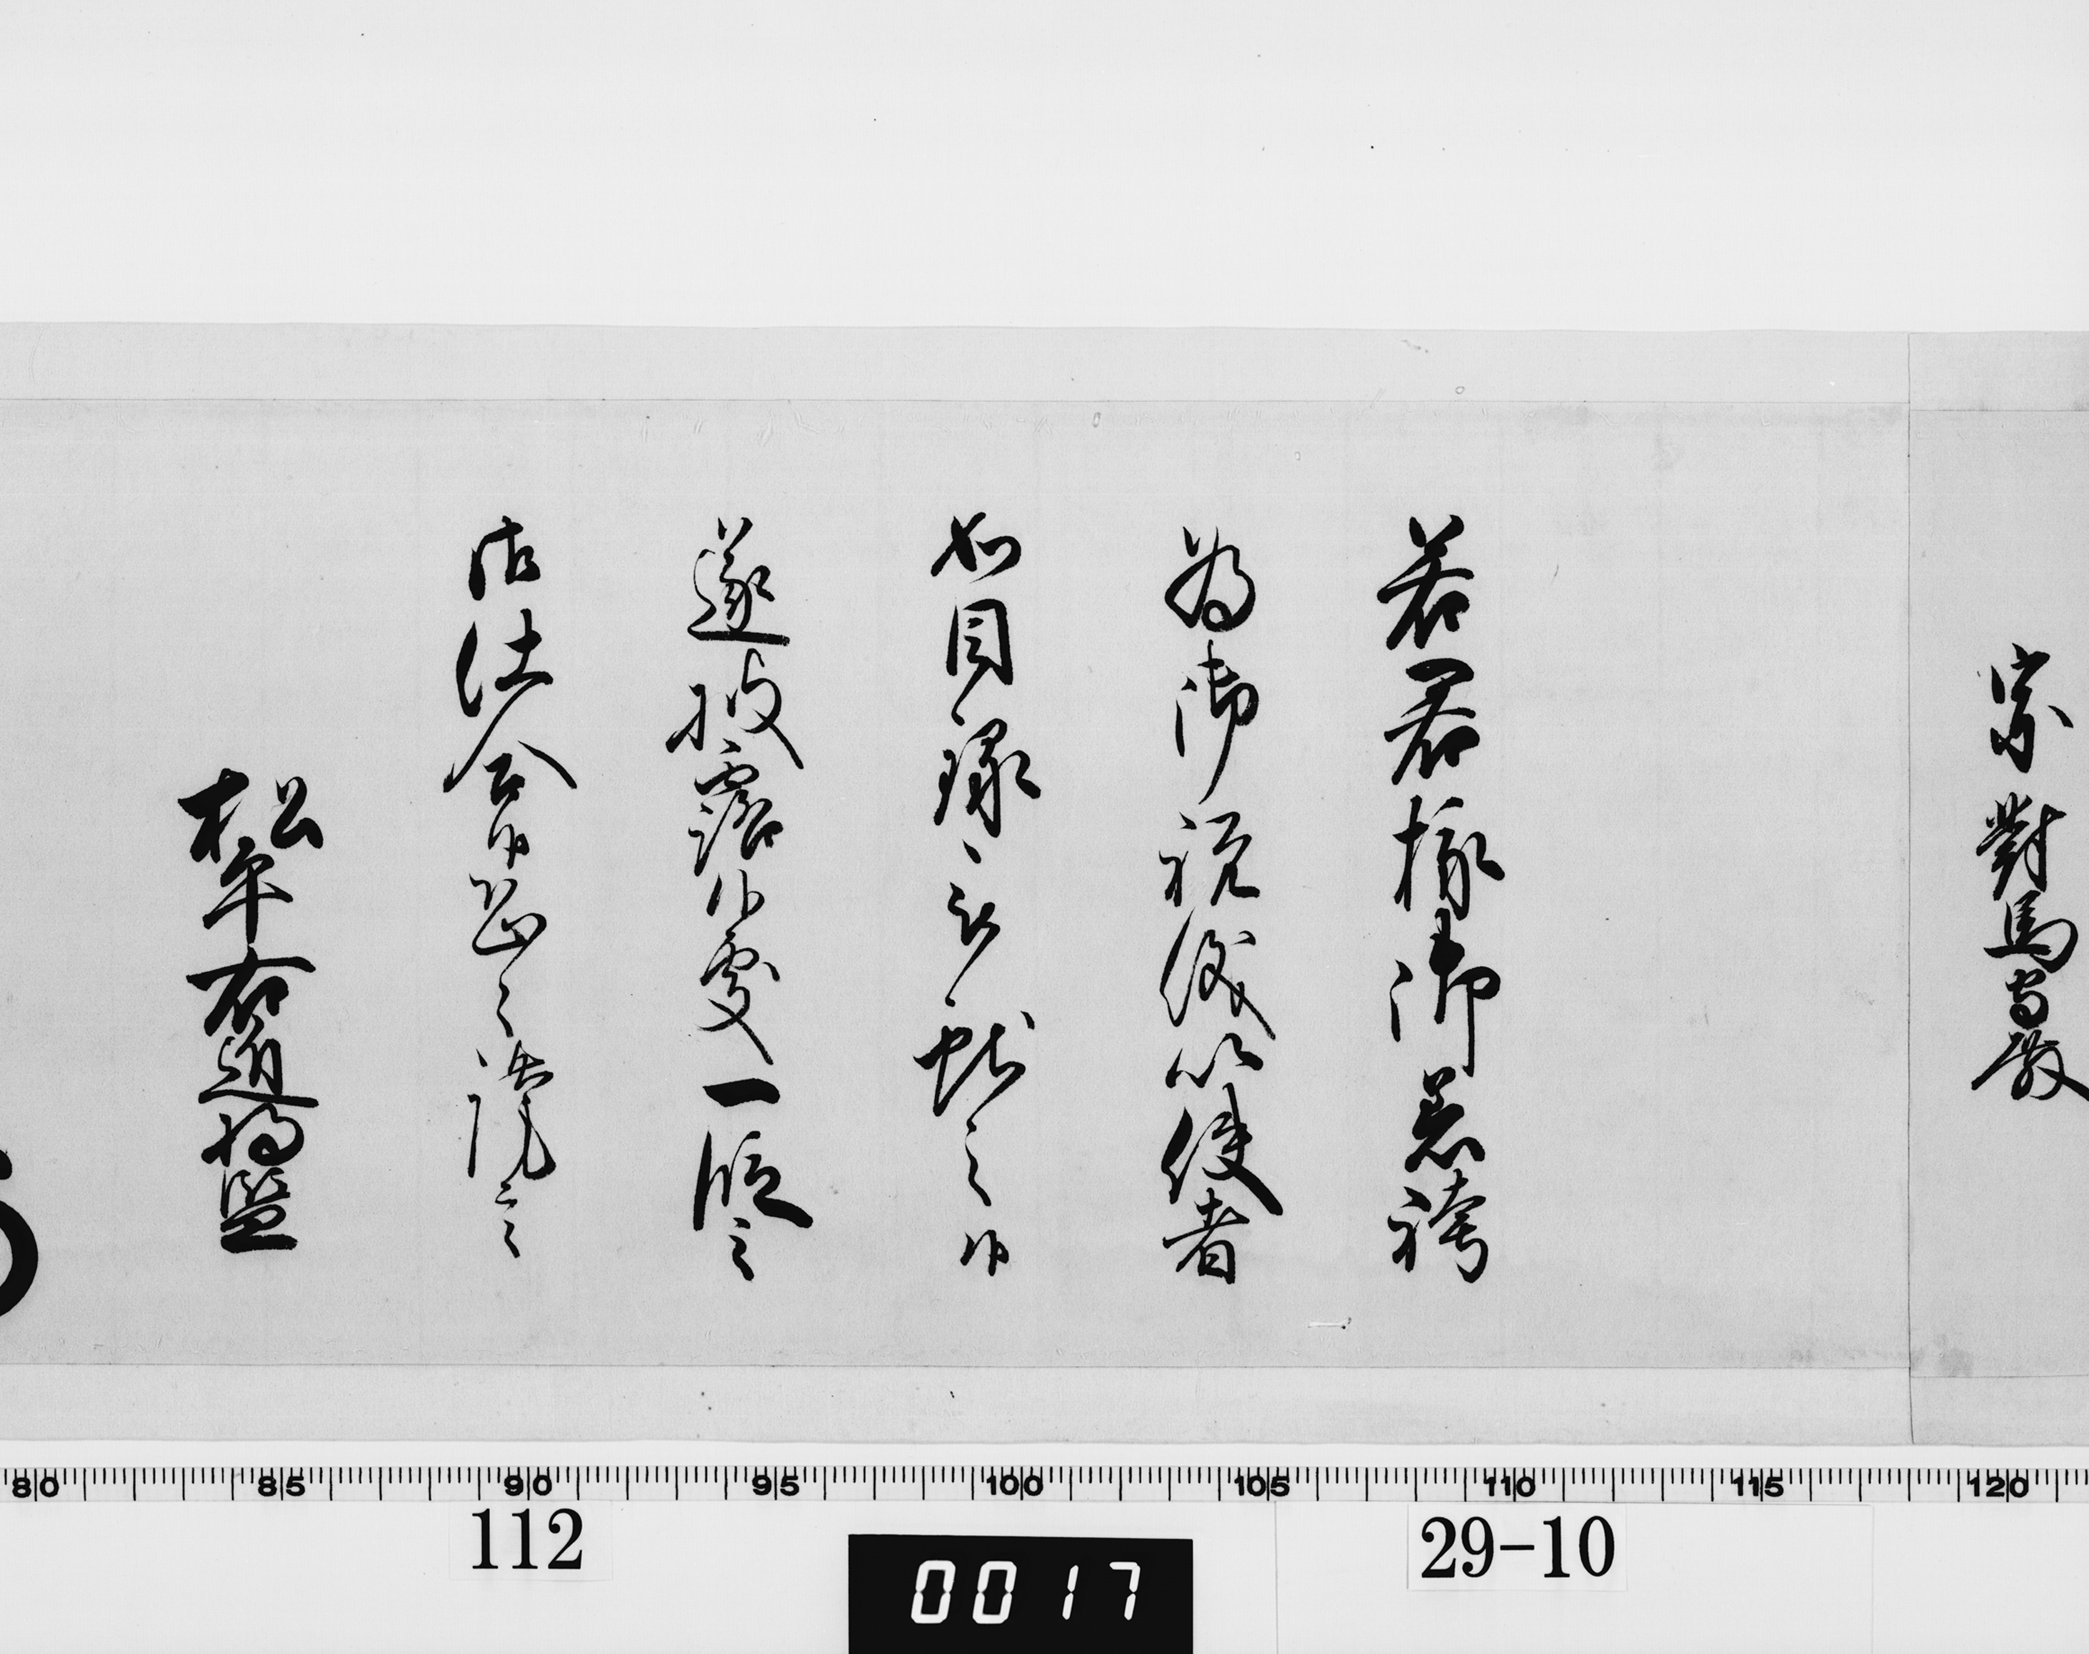 宗對馬守殿
若君様御着袴
為御祝儀以使者
如目録被献之候
遂披露候處一段之
御仕合候恐々謹言
松平右近将監
80 85 90 95 100 105 110 115 120
112
29-10
0017